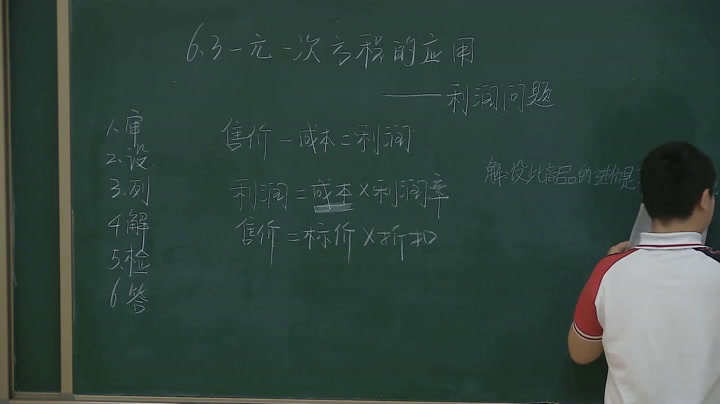 6.3一元一次方程的应用
——利润问题
1.审
2.设
3.列
4.解
5.检
6.答
售价－成本＝利润
利润＝成本×利润率
售价＝标价×折扣
解:设此商品的进价是